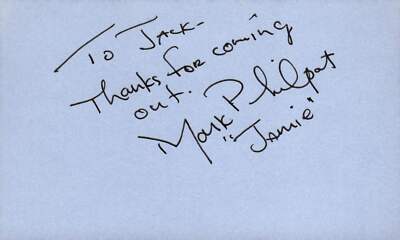 To Jack-
Thanks for coming
out.
Mark Philpot
"Jamie"